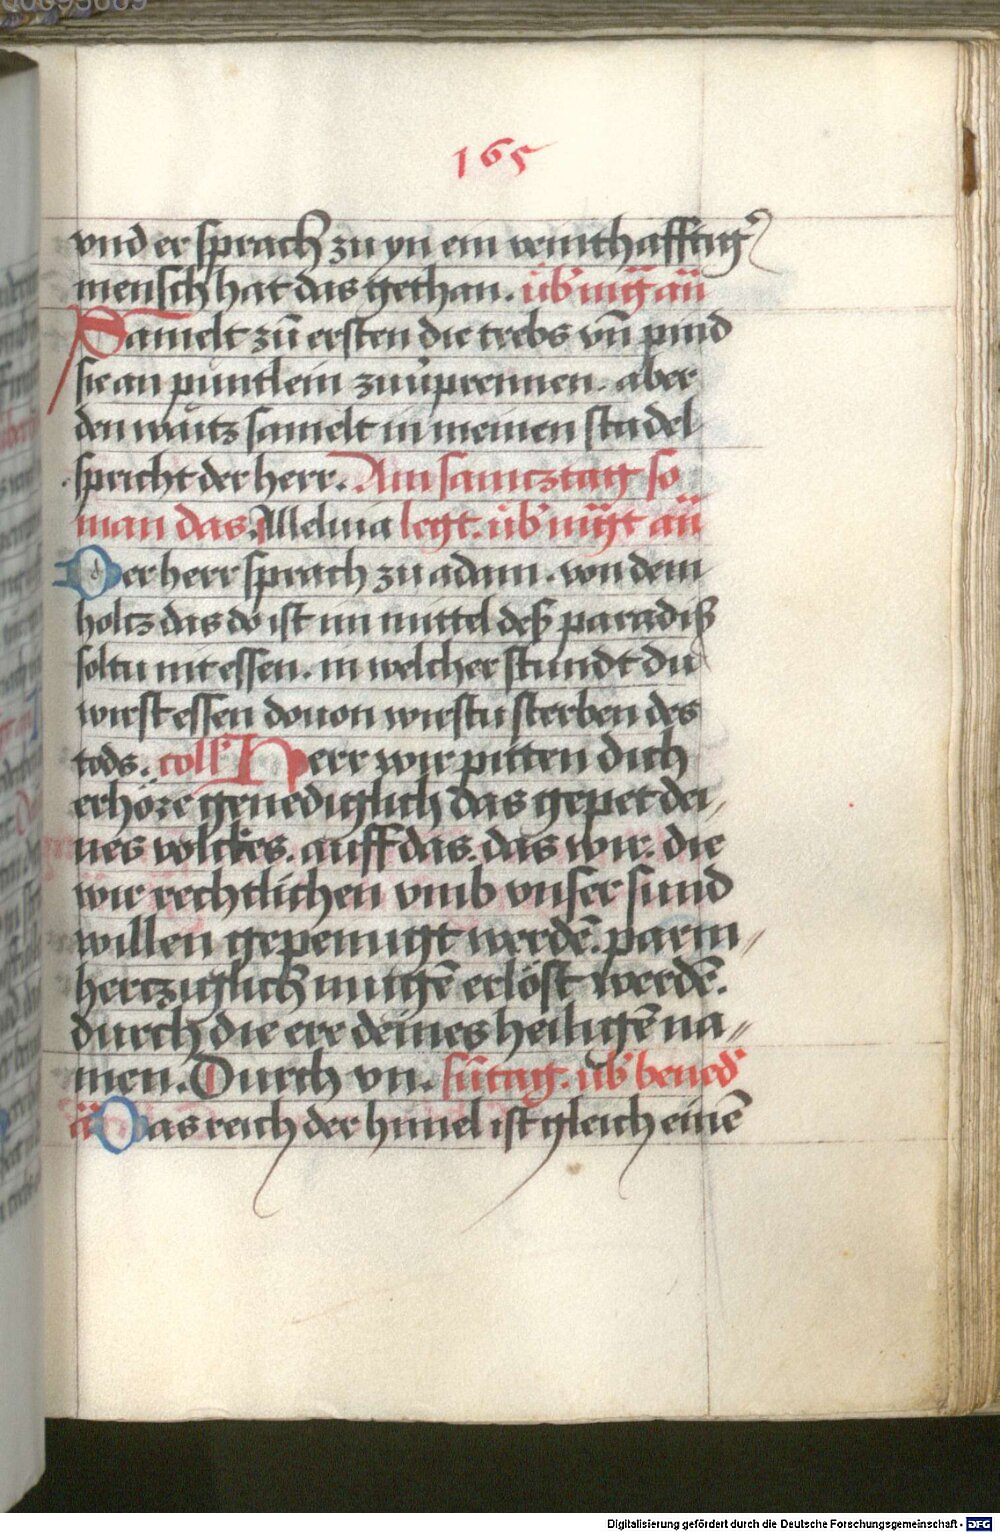 165
vnd er sprach zu yn ein veinthafftig᷑
mensch hat das gethan. üb᷑ mḡ an̄
Samelt zū ersten die trebs vn̄ pind
sie an püntlein zuu᷑prennen. aber
den waitz samelt in meinen stadel
spricht der herr. Am samtztag so
man das Alleluia legt. üb᷑ mḡt an̄
Der herr sprach zu adam. von dem
holtz das do ist im mittel deß paradiß
soltu nit essen. in welcher stundt du
wirst essen douon wirstu sterben des
tods. coll᷑ Herr wir pitten dich
erhöre genediglich das gepet dei⸗
nes volckes. auff das. das wir. die
wir rechtlichen vmb vnser sund
willen gepeinigt werdē. parm⸗
hertziglich mugē erlöst werdē.
durch die ere deines heiligē na⸗
men. Durch vn. sūtag. üb᷑ bened᷑
ā Das reich der himel ist gleich einē
Digitalisierung gefördert durch die Deutsche Forschungsgemeinschaft - DFG